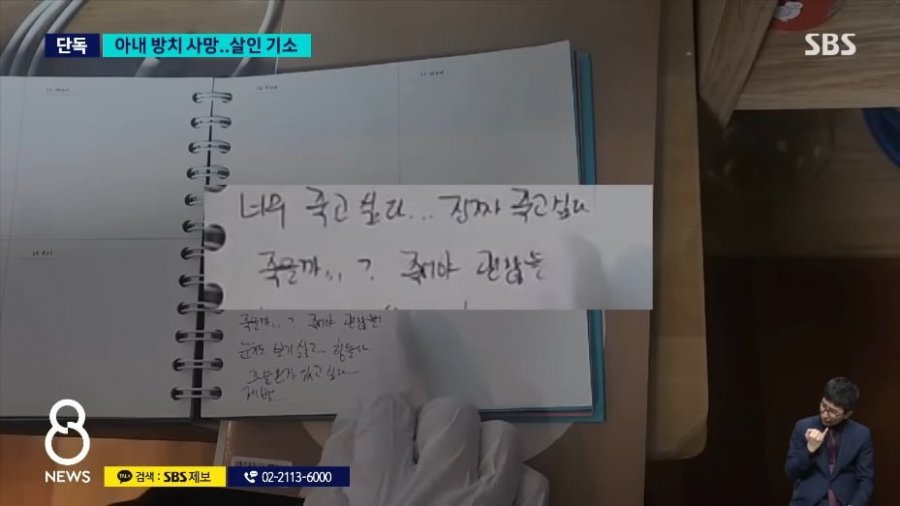 단독 아내 방치 사망..살인 기소
SBS
너무 죽고 싶다... 진짜 죽고싶다
죽을까... ? 죽어야 괜찮을
죽을까... ? 죽어야 괜찮을
눈치도 보기 싫고.. 힘들다
그냥 혼자 있고 싶다...
제발...
8
NEWS
TALK 검색 : SBS 제보
02-2113-6000